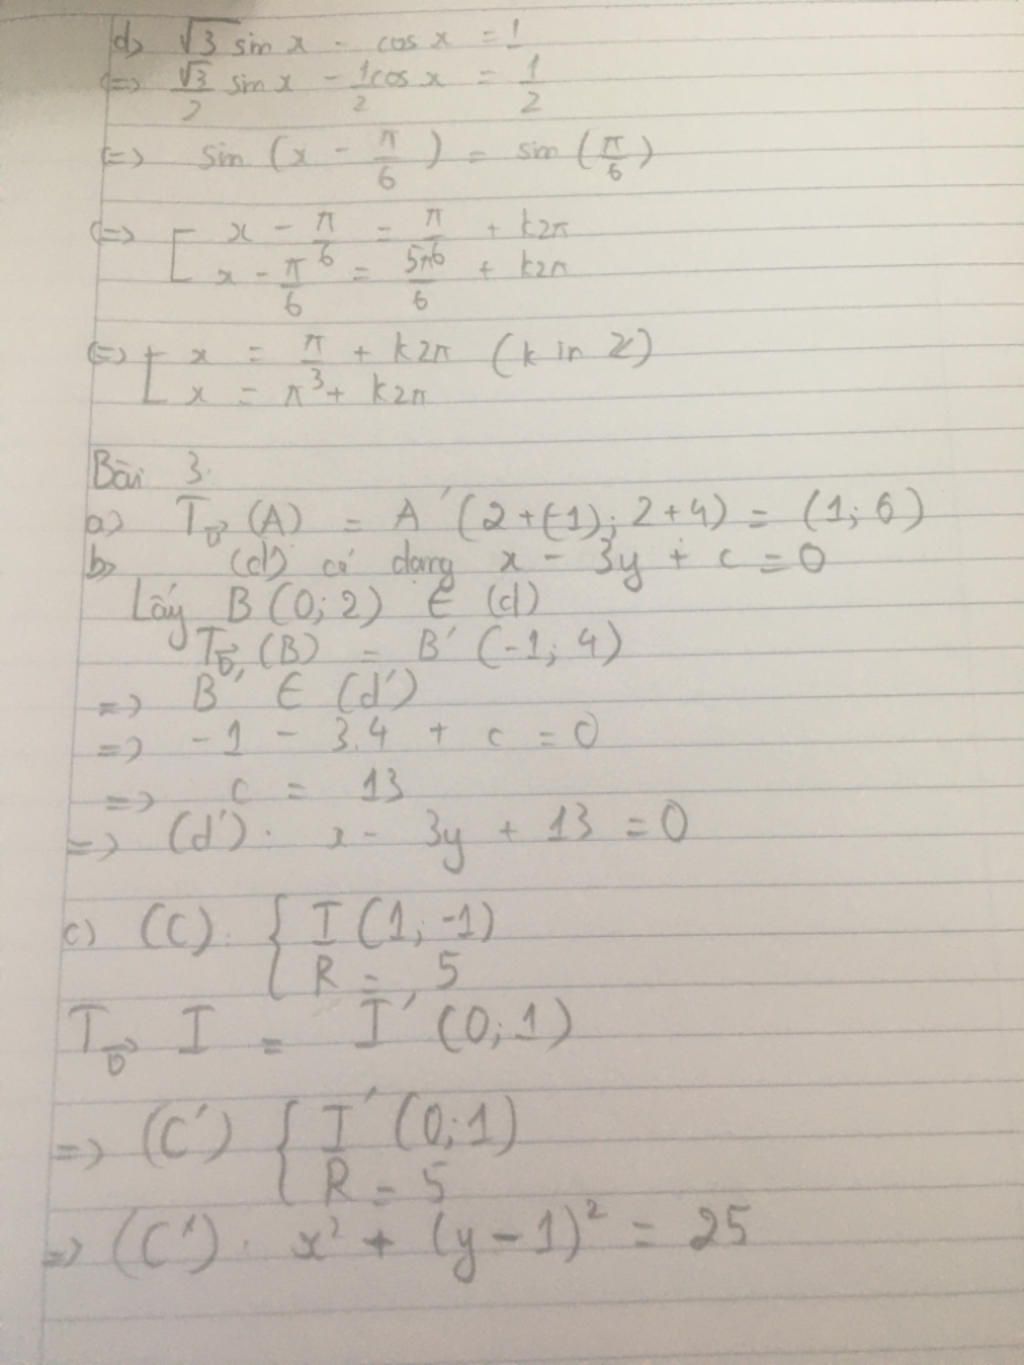 d) √3 sin x - cos x = 1
<=> √3/2 sin x - 1/2 cos x = 1/2
<=> sin (x - π/6) = sin (π/6)
<=> [ x - π/6 = π/6 + k2π
x - π/6 = 5π/6 + k2π
<=> [ x = π/3 + k2π (k in Z)
x = π + k2π
Bài 3.
a) T_v⃗ (A) = A' (2+(-1); 2+4) = (1; 6)
b) (d) có dạng x - 3y + c = 0
Lấy B (0; 2) ∈ (d)
T_v⃗ (B) = B' (-1; 4)
=> B' ∈ (d')
=> -1 - 3.4 + c = 0
=> c = 13
=> (d'): x - 3y + 13 = 0
c) (C): { I (1; -1)
R = 5
T_v⃗ I = I' (0; 1)
=> (C') { I' (0; 1)
R = 5
=> (C'): x² + (y - 1)² = 25